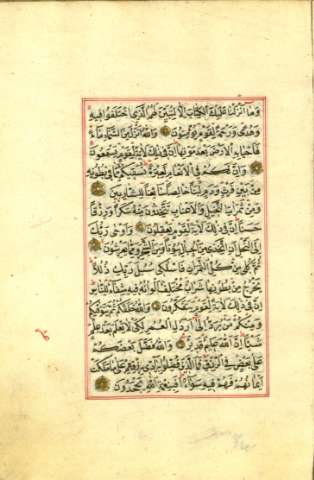 وَمَا أَنْزَلْنَا عَلَيْكَ الْكِتَابَ إِلَّا لِتُبَيِّنَ لَهُمُ الَّذِي اخْتَلَفُوا فِيهِ
وَهُدًى وَرَحْمَةً لِقَوْمٍ يُؤْمِنُونَ وَاللَّهُ أَنْزَلَ مِنَ السَّمَاءِ مَاءً
فَأَحْيَا بِهِ الْأَرْضَ بَعْدَ مَوْتِهَا إِنَّ فِي ذَلِكَ لَآيَةً لِقَوْمٍ يَسْمَعُونَ
وَإِنَّ لَكُمْ فِي الْأَنْعَامِ لَعِبْرَةً نُسْقِيكُمْ مِمَّا فِي بُطُونِهِ
مِنْ بَيْنِ فَرْثٍ وَدَمٍ لَبَنًا خَالِصًا سَائِغًا لِلشَّارِبِينَ
وَمِنْ ثَمَرَاتِ النَّخِيلِ وَالْأَعْنَابِ تَتَّخِذُونَ مِنْهُ سَكَرًا وَرِزْقًا
حَسَنًا إِنَّ فِي ذَلِكَ لَآيَةً لِقَوْمٍ يَعْقِلُونَ وَأَوْحَى رَبُّكَ
إِلَى النَّحْلِ أَنِ اتَّخِذِي مِنَ الْجِبَالِ بُيُوتًا وَمِنَ الشَّجَرِ وَمِمَّا يَعْرِشُونَ
ثُمَّ كُلِي مِنْ كُلِّ الثَّمَرَاتِ فَاسْلُكِي سُبُلَ رَبِّكِ ذُلُلًا
يَخْرُجُ مِنْ بُطُونِهَا شَرَابٌ مُخْتَلِفٌ أَلْوَانُهُ فِيهِ شِفَاءٌ لِلنَّاسِ
إِنَّ فِي ذَلِكَ لَآيَةً لِقَوْمٍ يَتَفَكَّرُونَ وَاللَّهُ خَلَقَكُمْ ثُمَّ يَتَوَفَّاكُمْ
وَمِنْكُمْ مَنْ يُرَدُّ إِلَى أَرْذَلِ الْعُمُرِ لِكَيْ لَا يَعْلَمَ بَعْدَ عِلْمٍ
شَيْئًا إِنَّ اللَّهَ عَلِيمٌ قَدِيرٌ وَاللَّهُ فَضَّلَ بَعْضَكُمْ
عَلَى بَعْضٍ فِي الرِّزْقِ فَمَا الَّذِينَ فُضِّلُوا بِرَادِّي رِزْقِهِمْ عَلَى مَا مَلَكَتْ
أَيْمَانُهُمْ فَهُمْ فِيهِ سَوَاءٌ أَفَبِنِعْمَةِ اللَّهِ يَجْحَدُونَ